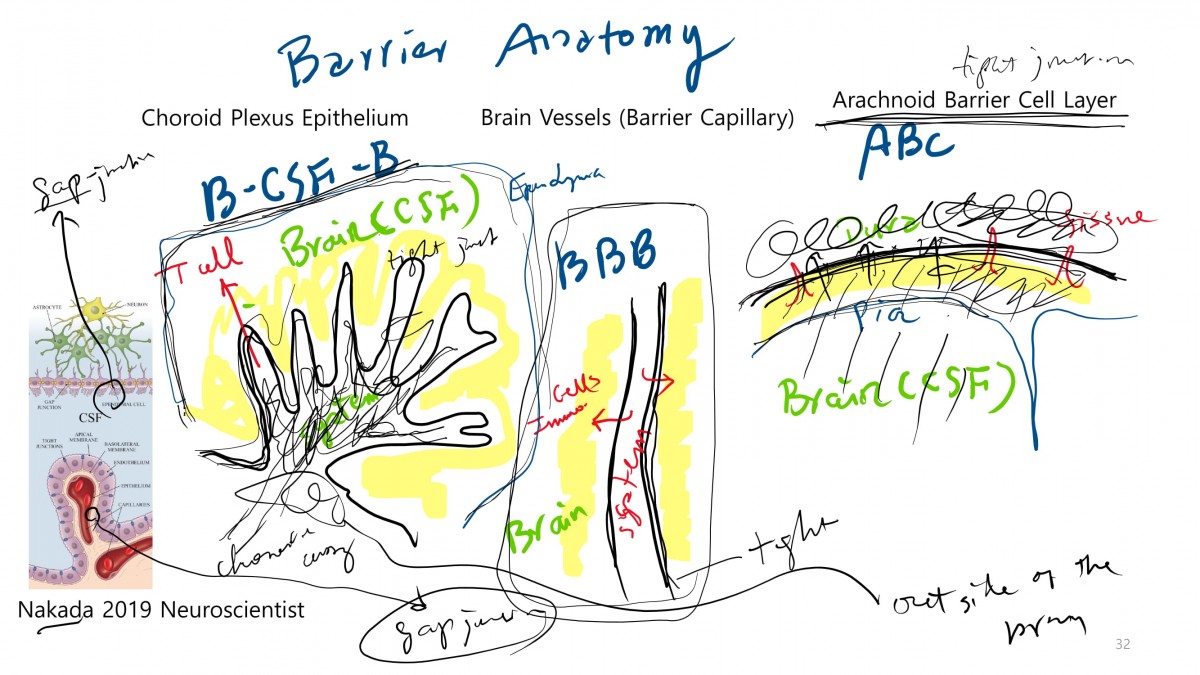 Barrier Anatomy
tight junction
Choroid Plexus Epithelium
Brain Vessels (Barrier Capillary)
Arachnoid Barrier Cell Layer
ABC
gap-junction
B-CSF-B
Ependyma
Brain (CSF)
tight junct
T cell
BBB
Dura
tissue
Pia
Brain (CSF)
ASTROCYTE
NEURON
GAP JUNCTION
EPENDYMAL CELL
CSF
APICAL MEMBRANE
TIGHT JUNCTIONS
BASOLATERAL MEMBRANE
ENDOTHELIUM
EPITHELIUM
CAPILLARIES
cells
Immu.
system
Brain
tight
Nakada 2019 Neuroscientist
gap junc
outside of the
32